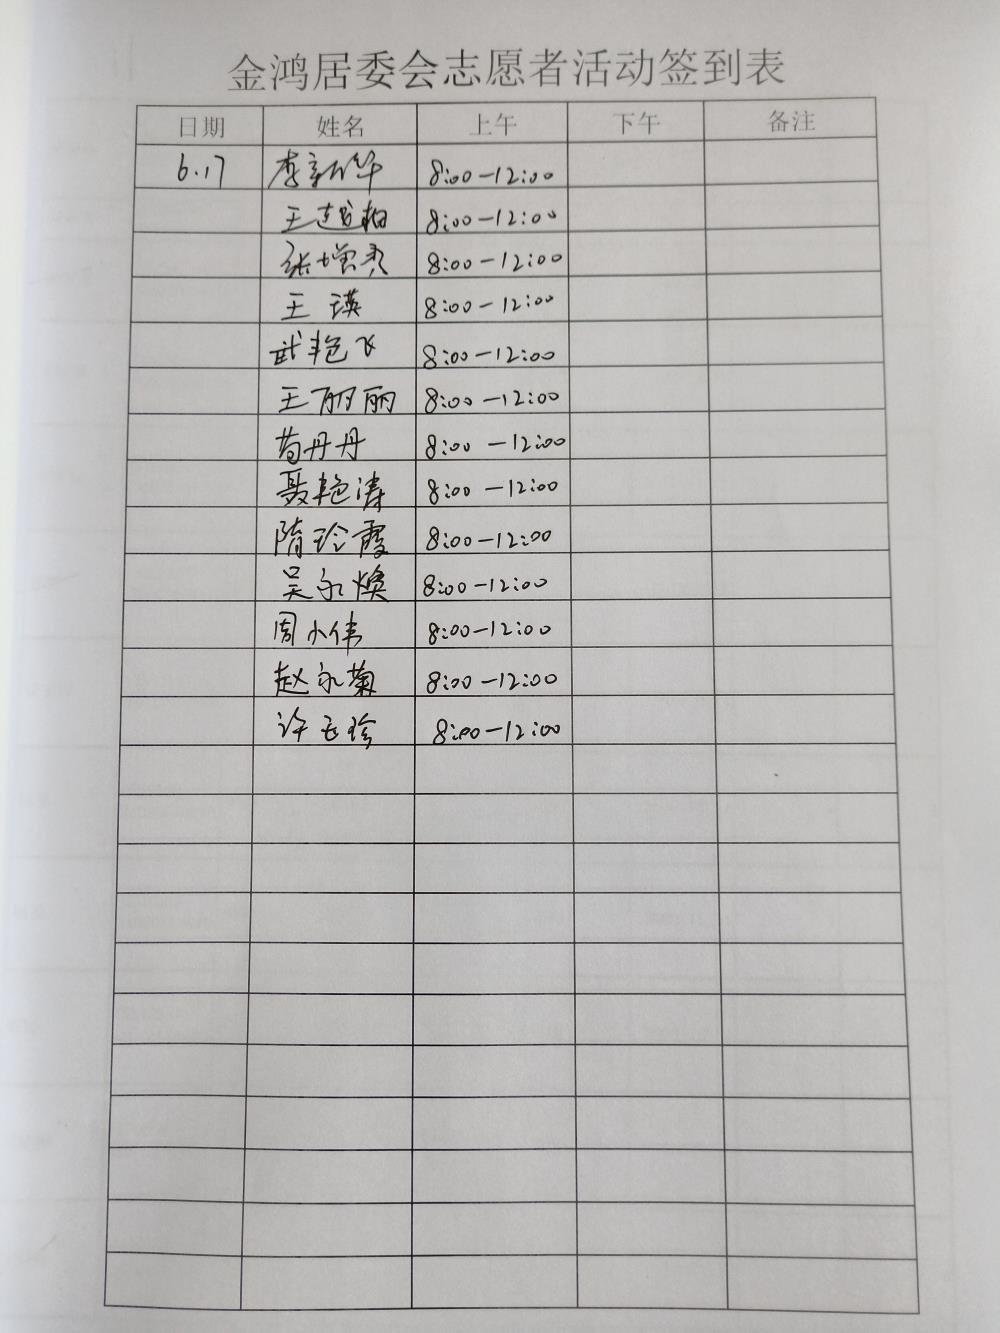 金鸿居委会志愿者活动签到表
日期 姓名 上午 下午 备注
6.17 李新华 8:00-12:00
王 8:00-12:00
张增秀 8:00-12:00
王瑛 8:00-12:00
武艳飞 8:00-12:00
王丽丽 8:00-12:00
苟丹丹 8:00-12:00
聂艳涛 8:00-12:00
隋玲霞 8:00-12:00
吴永焕 8:00-12:00
周小伟 8:00-12:00
赵永菊 8:00-12:00
许玉珍 8:00-12:00